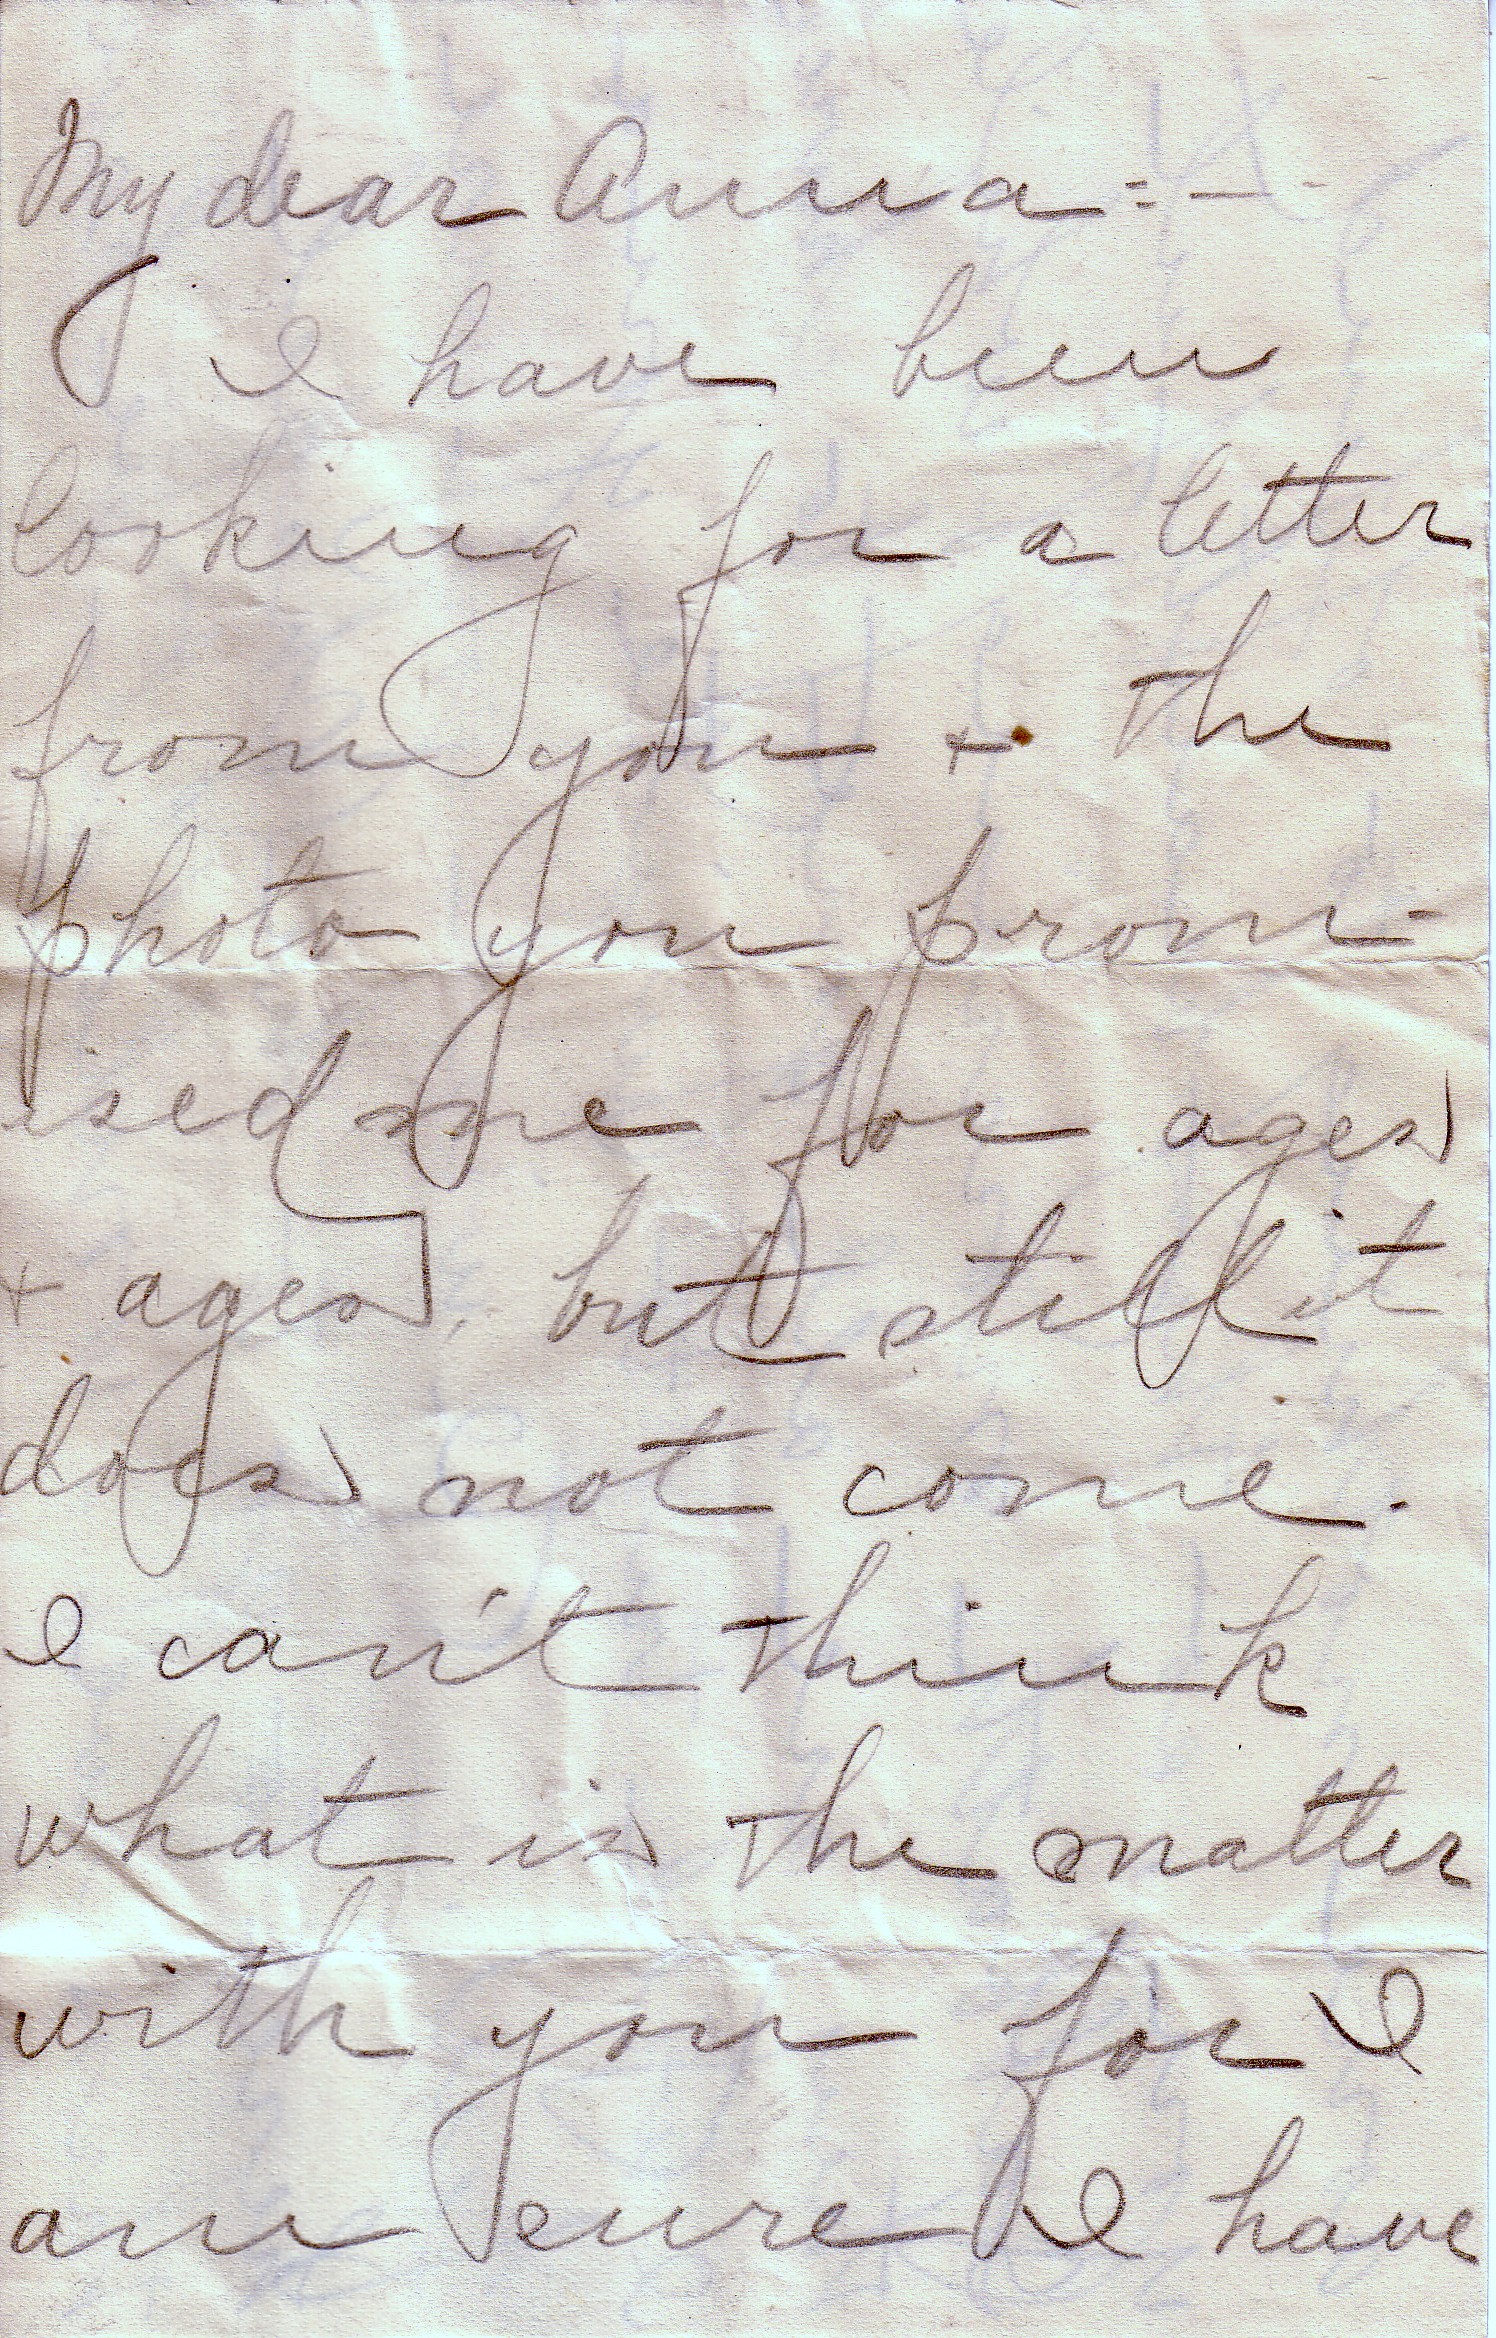 My dear Anna:-
I have been
looking for a letter
from you + the
photo you prom-
ised me for ages
+ ages, but still it
does not come.
I can't think
what is the matter
with you for I
am sure I have